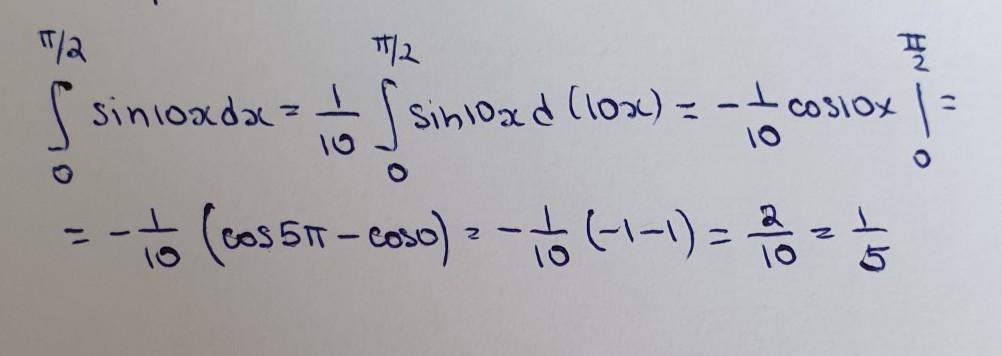 ∫₀^π/2 sin10xdx = 1/10 ∫₀^π/2 sin10xd(10x) = -1/10 cos10x |₀^π/2 =
= -1/10 (cos5π - cos0) = -1/10 (-1-1) = 2/10 = 1/5